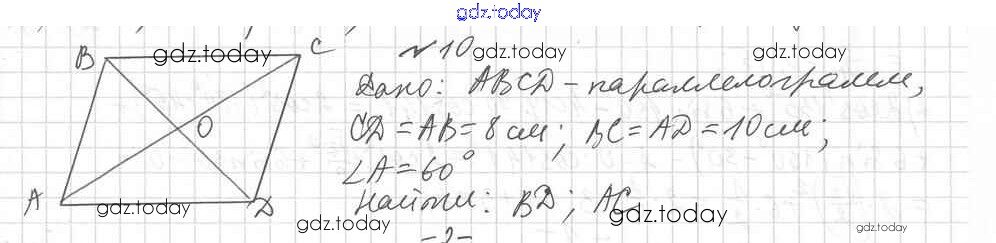 gdz.today
B C gdz.today
№10 gdz.today gdz.today
Дано: ABCD – параллелограмм,
O
CD = AB = 8 см; BC = AD = 10 см;
∠A = 60°
A D gdz.today
Найти: BD; AC
gdz.today gdz.today